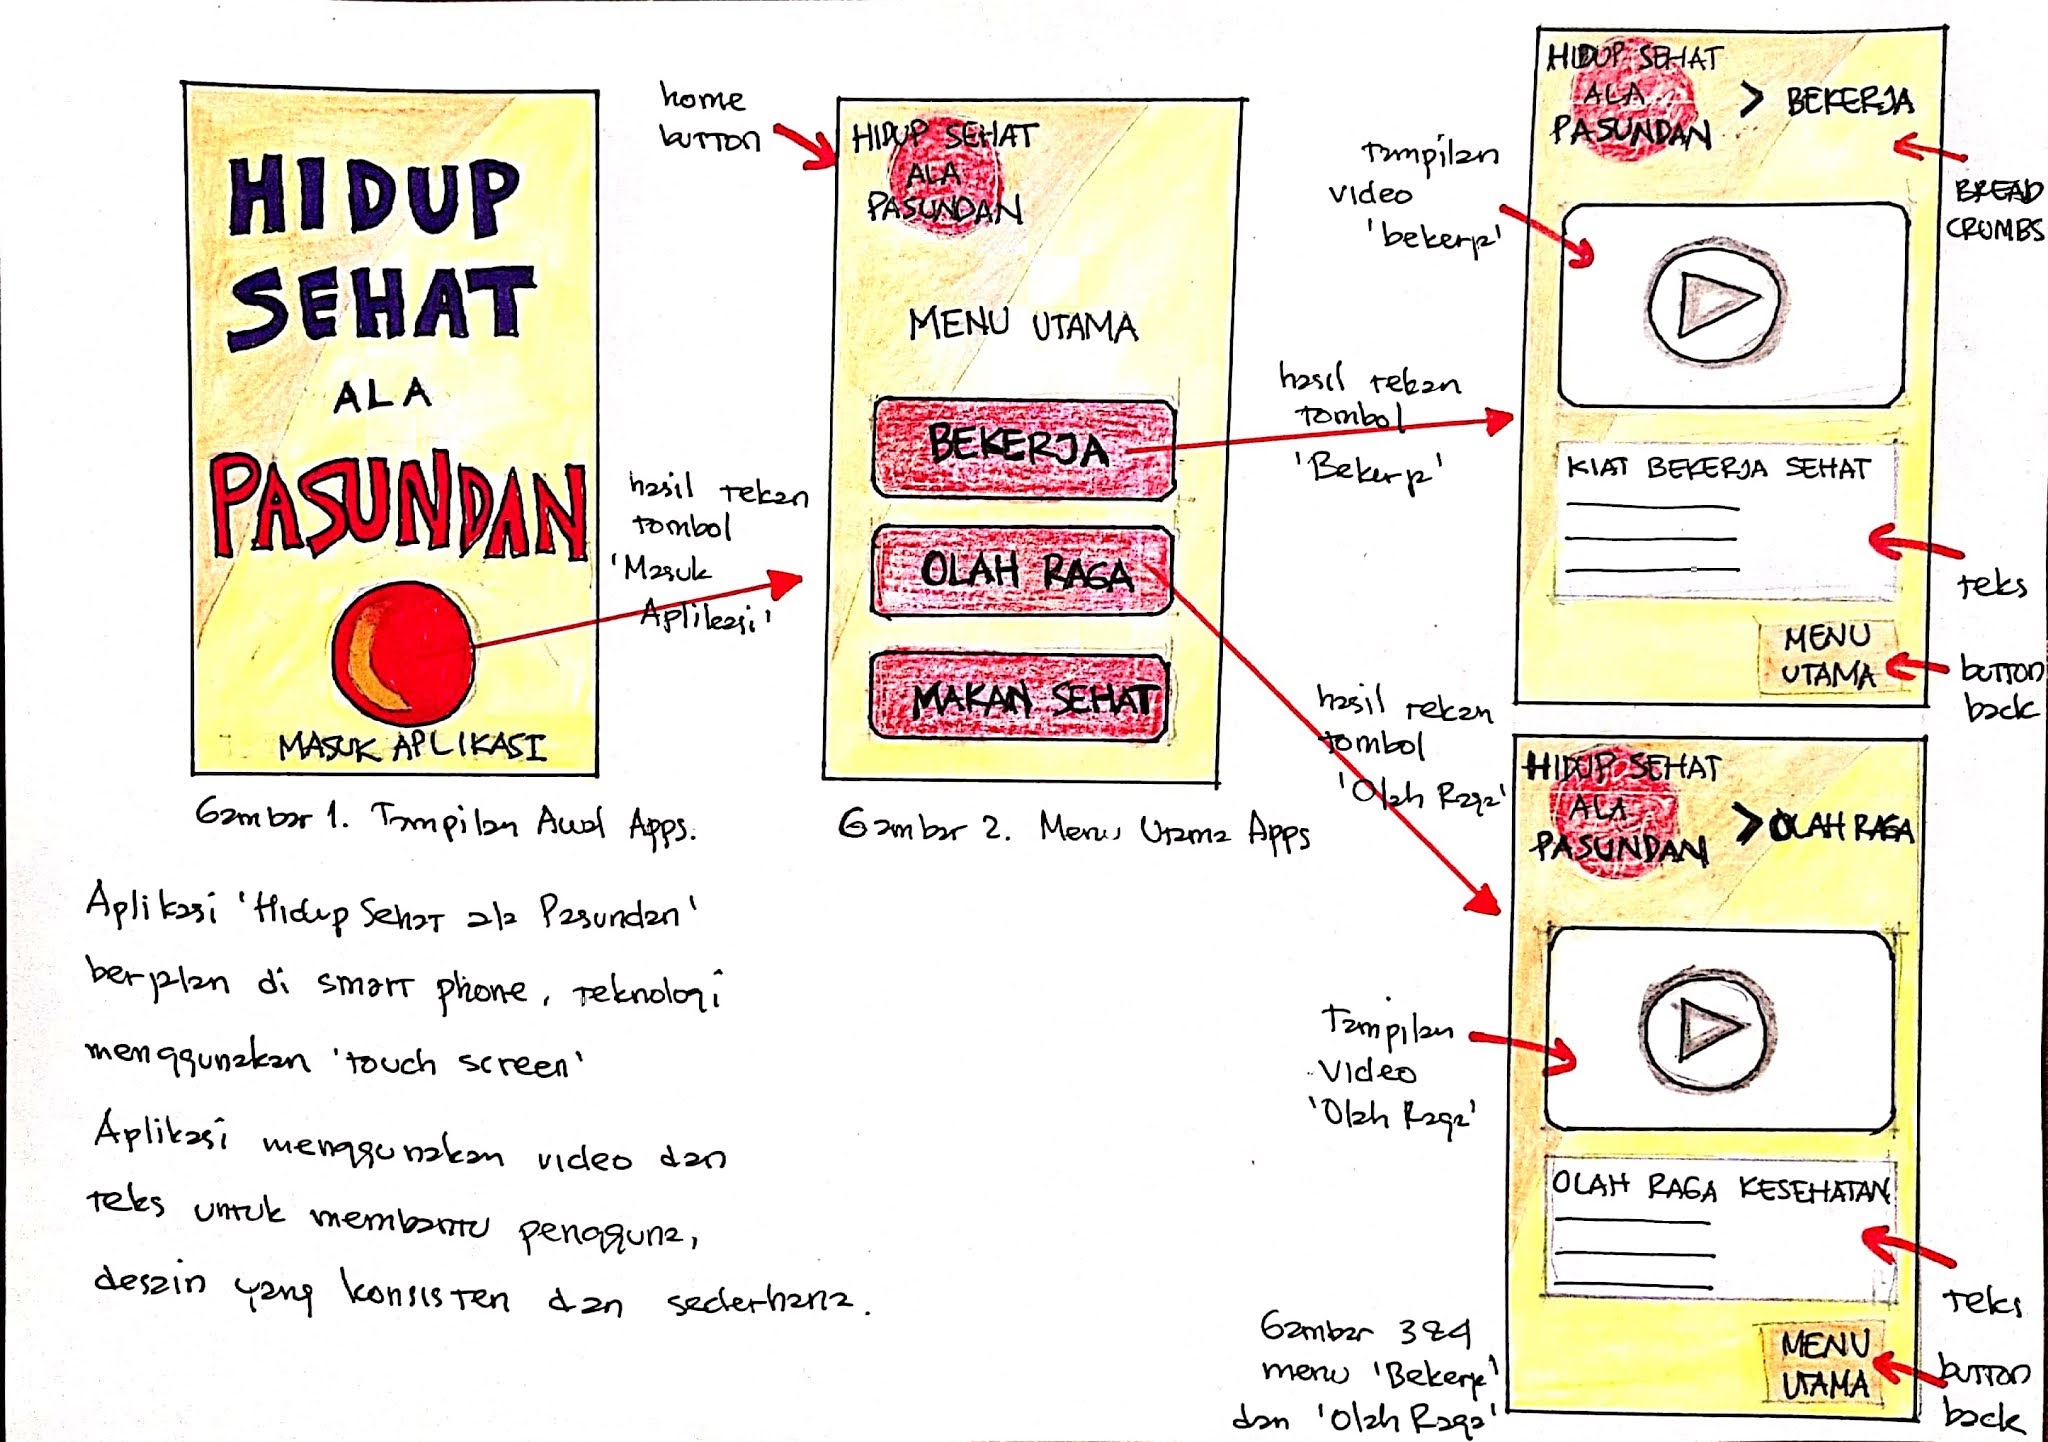 HIDUP
SEHAT
ALA
PASUNDAN
MASUK APLIKASI
Gambar 1. Tampilan Awal Apps.
hasil tekan
tombol
'Masuk
Aplikasi'
home
button
HIDUP SEHAT
ALA
PASUNDAN
MENU UTAMA
BEKERJA
OLAH RAGA
MAKAN SEHAT
Gambar 2. Menu Utama Apps
hasil tekan
tombol
'Bekerja'
hasil tekan
tombol
'Olah Raga'
HIDUP SEHAT
ALA
PASUNDAN
> BEKERJA
BREAD
CRUMBS
tampilan
video
'bekerja'
KIAT BEKERJA SEHAT
teks
MENU
UTAMA
button
back
HIDUP SEHAT
ALA
PASUNDAN
> OLAH RAGA
Tampilan
video
'Olah Raga'
OLAH RAGA KESEHATAN
teks
MENU
UTAMA
button
back
Gambar 3&4
menu 'Bekerja'
dan 'Olah Raga'
Aplikasi 'Hidup Sehat ala Pasundan'
berjalan di smart phone, teknologi
menggunakan 'touch screen'
Aplikasi menggunakan video dan
teks untuk membantu pengguna,
desain yang konsisten dan sederhana.